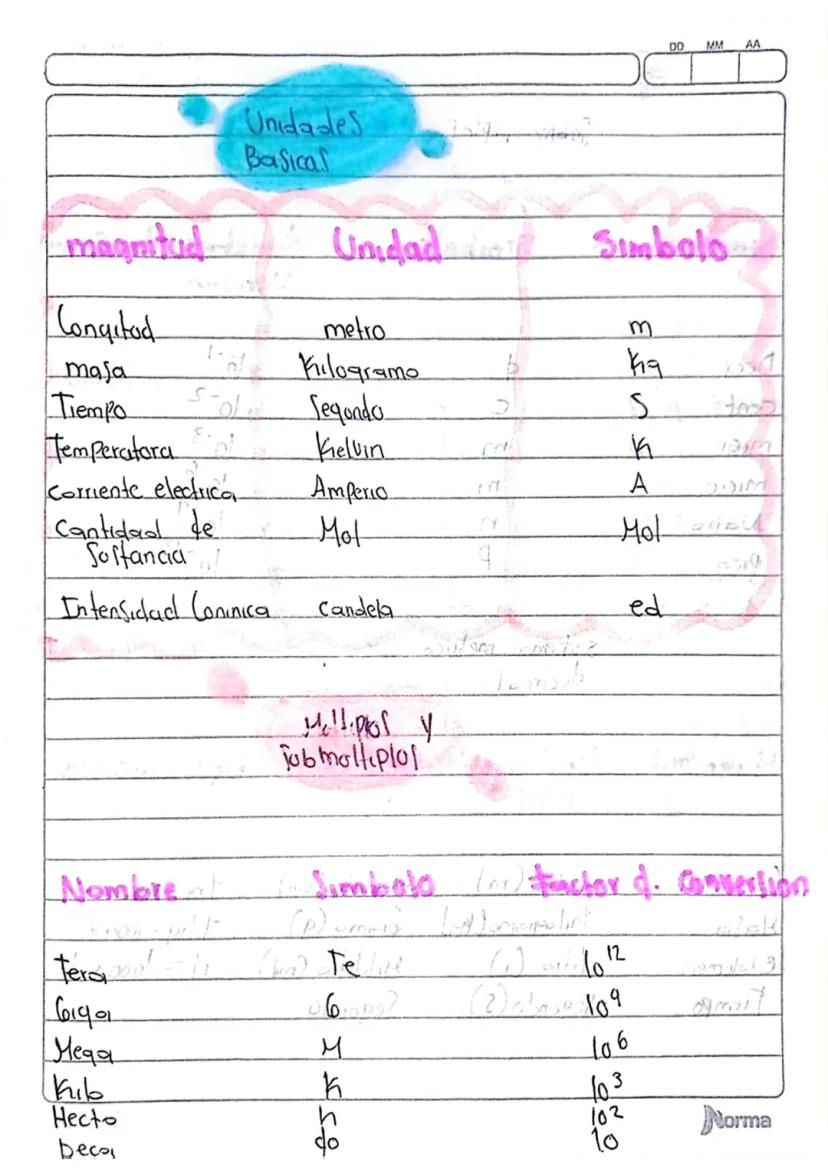 DD MM AA
Unidades
Basicas
magnitud Unidad Simbolo
Longitud metro m
masa Kilogramo Kg
Tiempo Segundo S
Temperatura Kielvin K
corriente electrica Amperio A
Cantidad de Mol Mol
Sustancia
Intensidad Luminica candela cd
Multiplos y
submultiplos
Nombre Simbolo Factor d. Conversion
Tera Te 10¹²
Giga G 10⁹
Mega M 10⁶
Kilo K 10³
Hecto h 10²
Deca da 10
Norma